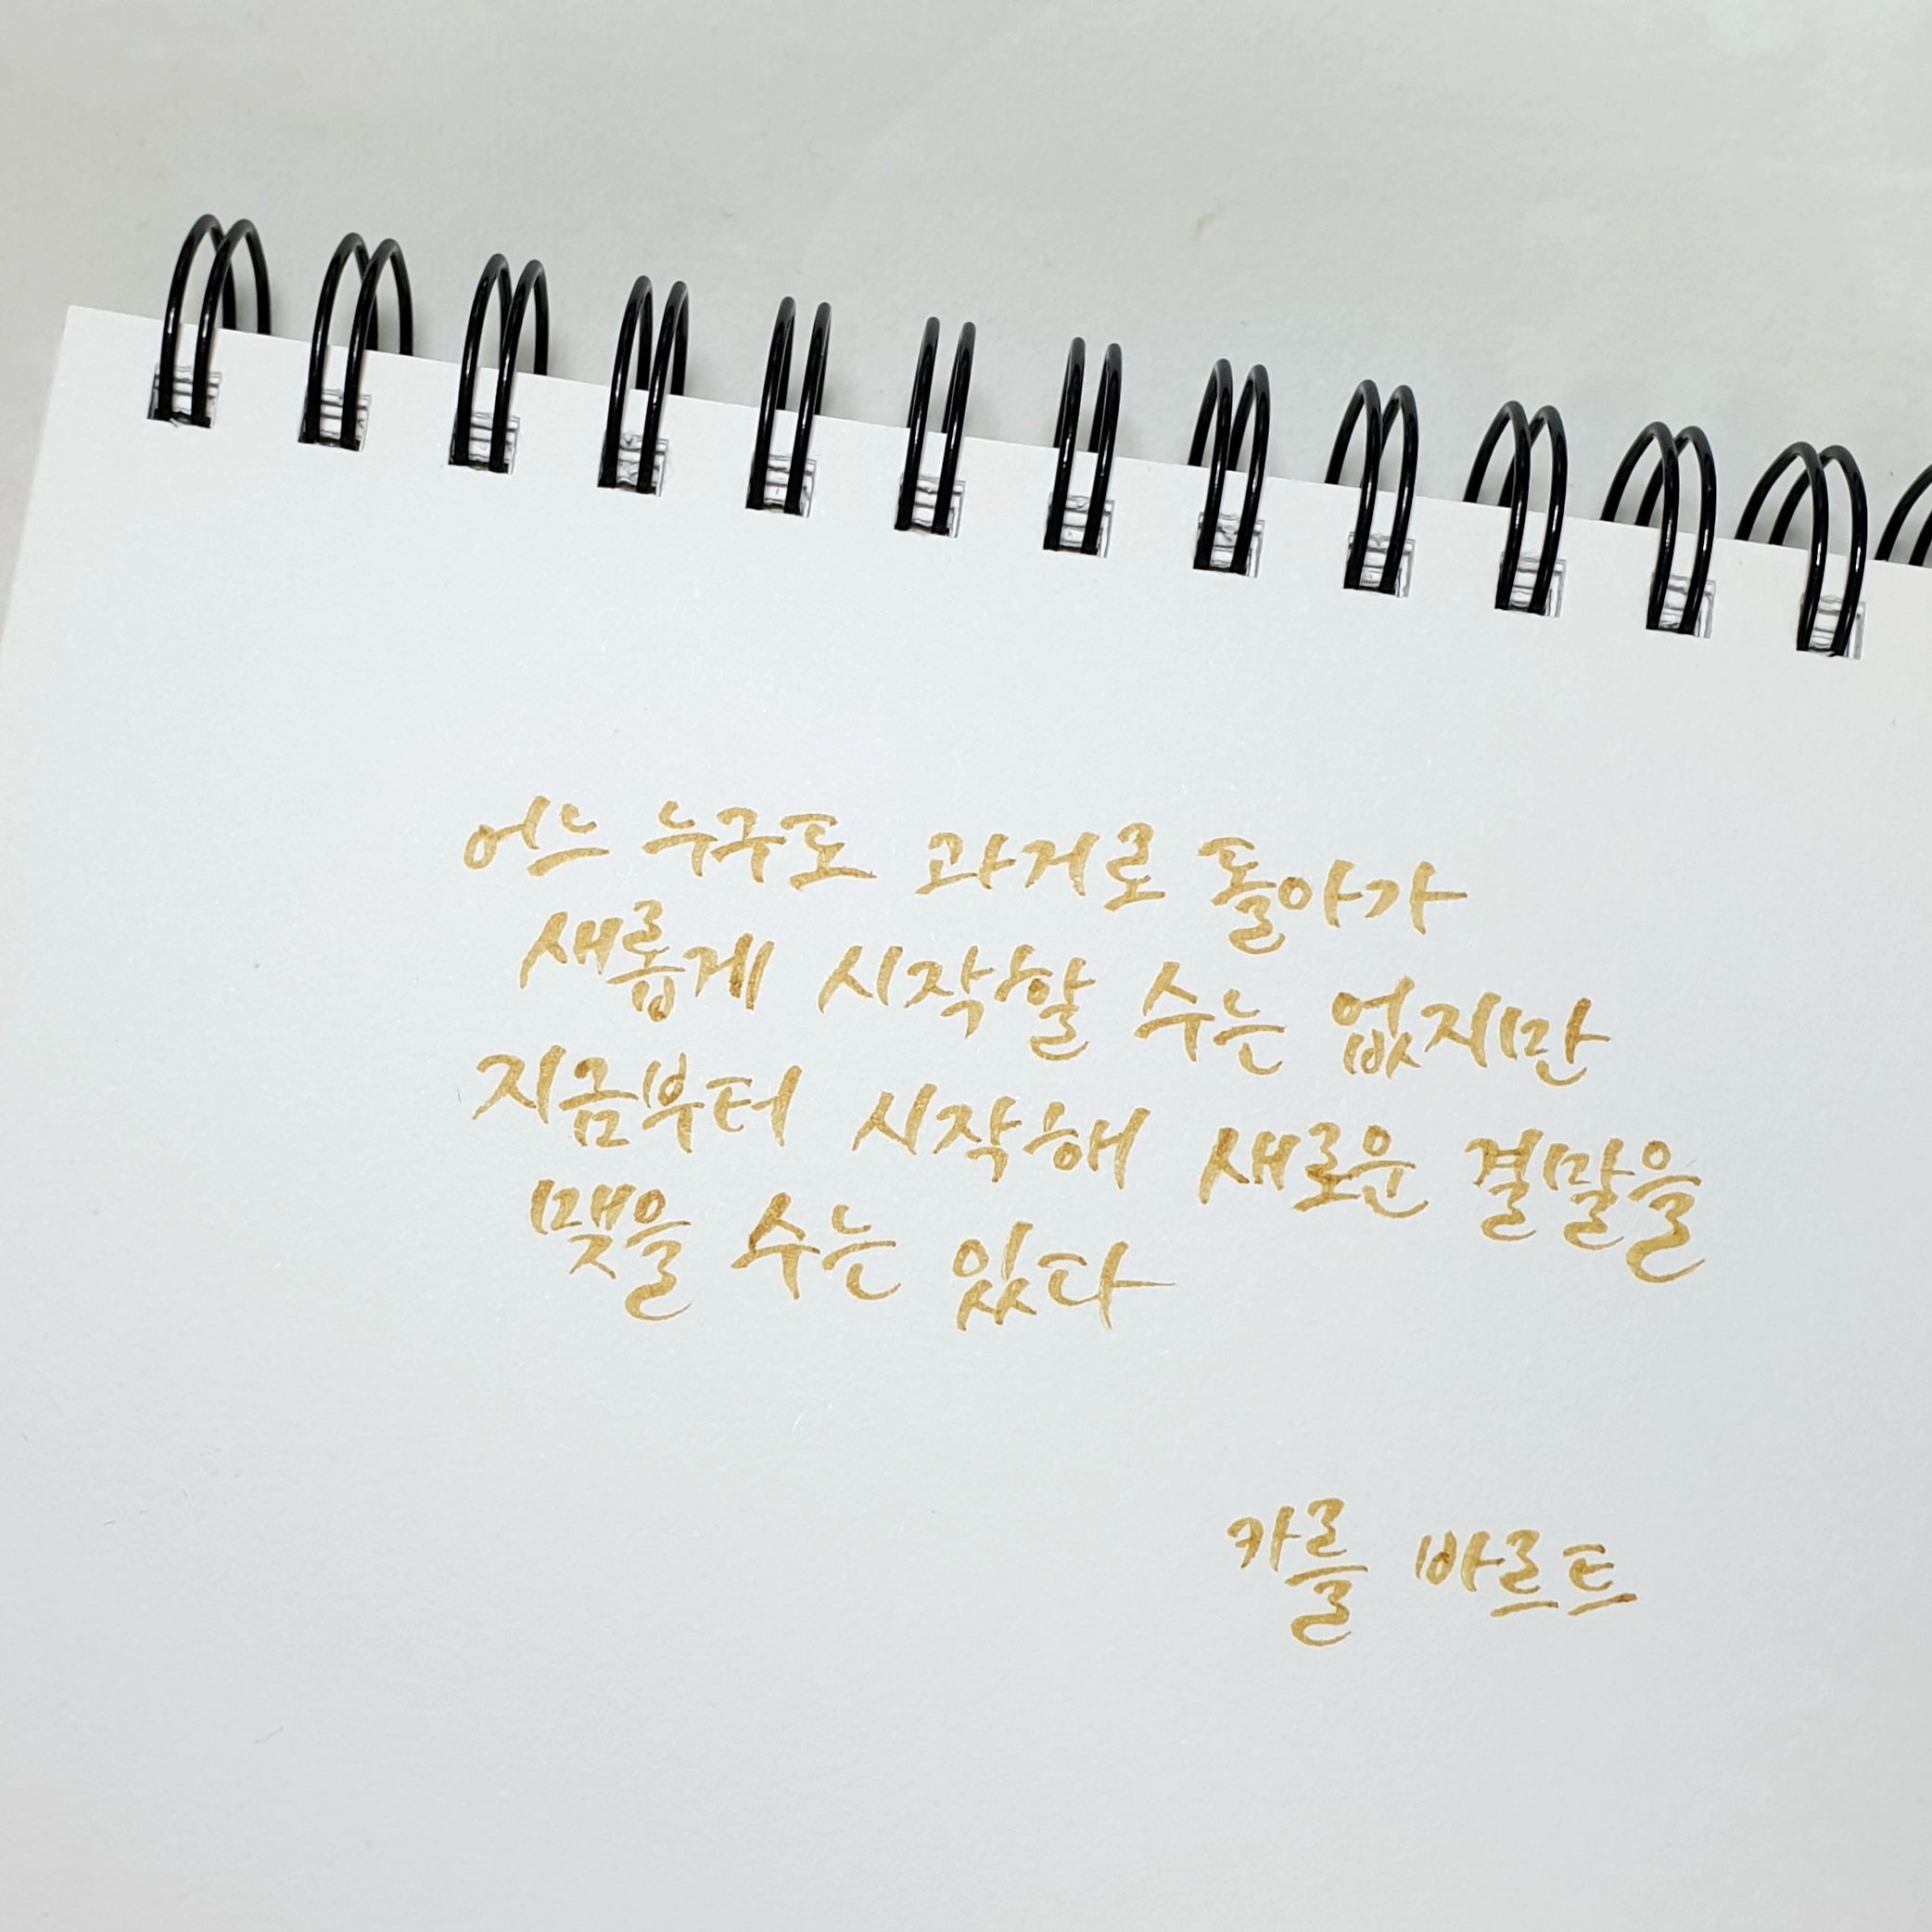 어느 누구도 과거로 돌아가
새롭게 시작할 수는 없지만
지금부터 시작해 새로운 결말을
맺을 수는 있다
카를 바르트